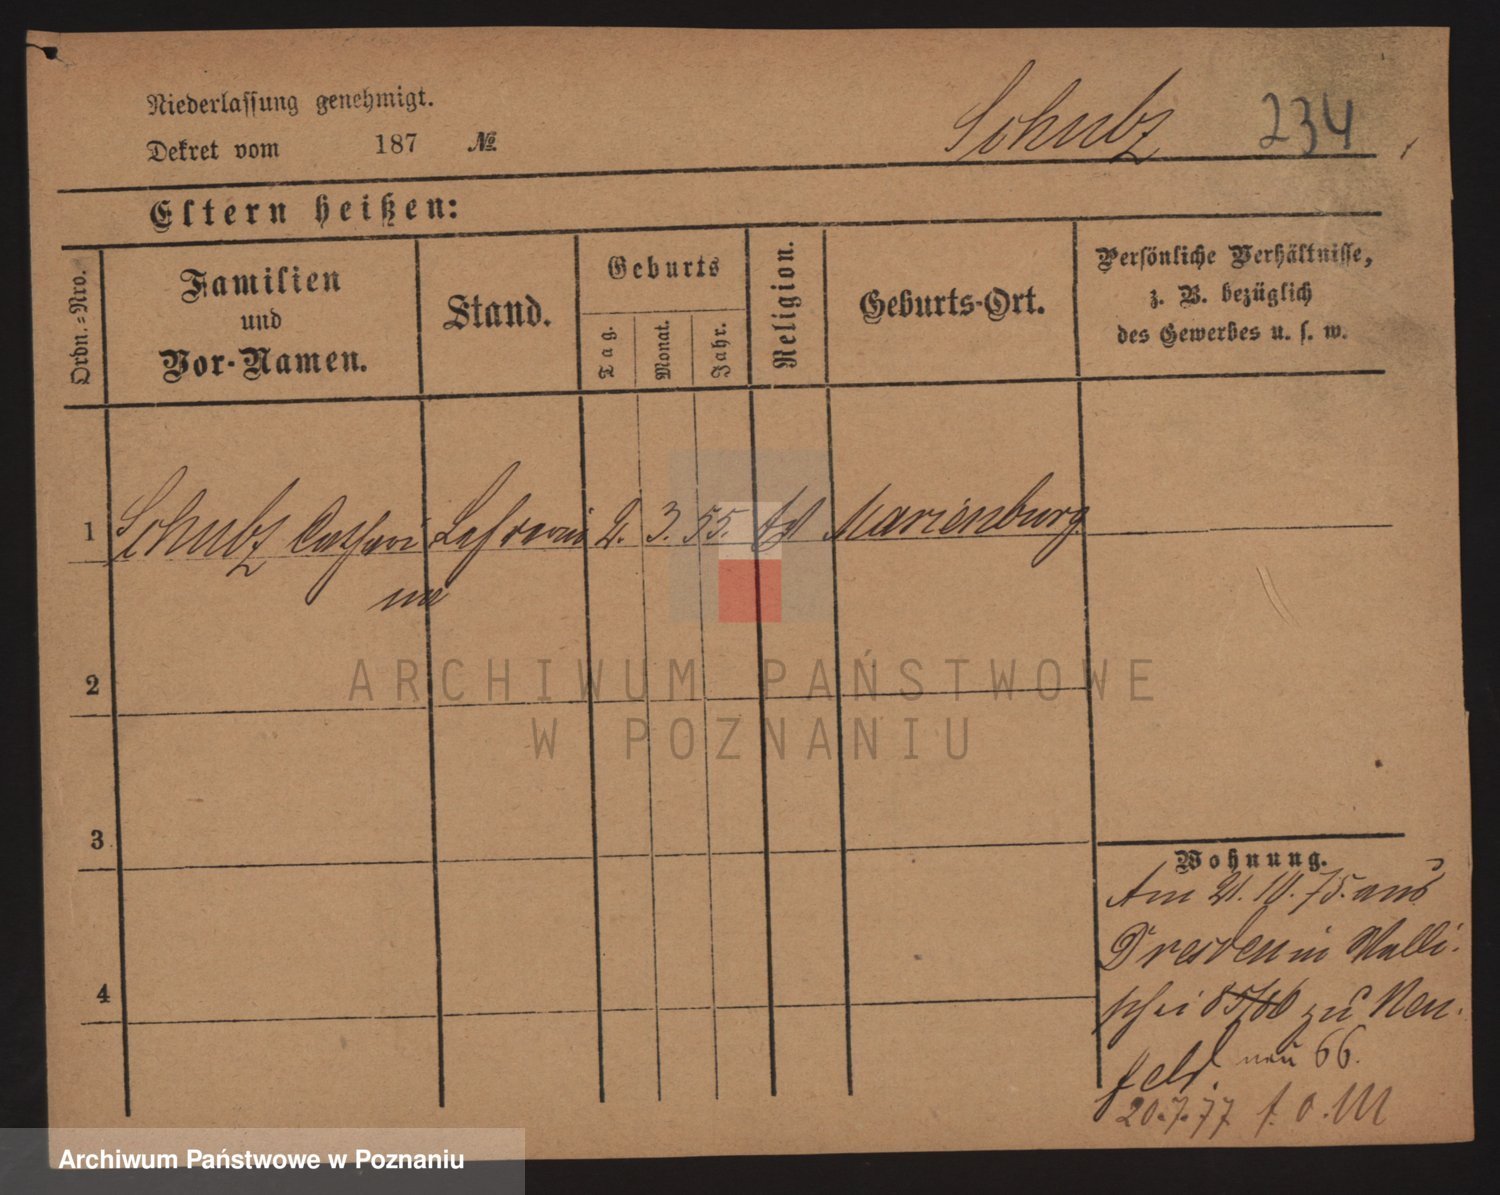 Niederlassung genehmigt.
Dekret vom 187 №
Schubz 234
Eltern heißen:
Ordn.-Nro.
Familien
und
Vor-Namen.
Stand.
Geburts
Tag.
Monat.
Jahr.
Religion.
Geburts-Ort.
Persönliche Verhältnisse,
z. B. bezüglich
des Gewerbes u. s. w.
1 Schubz Cathari 2. 3. 55. Marienburg
na
2
3
4
Wohnung.
Am 21. 10. 75. aus
Dresden in Walli-
schei 85/86 zu Neu-
feld neu 66.
20.7.77
ARCHIWUM PAŃSTWOWE
W POZNANIU
Archiwum Państwowe w Poznaniu